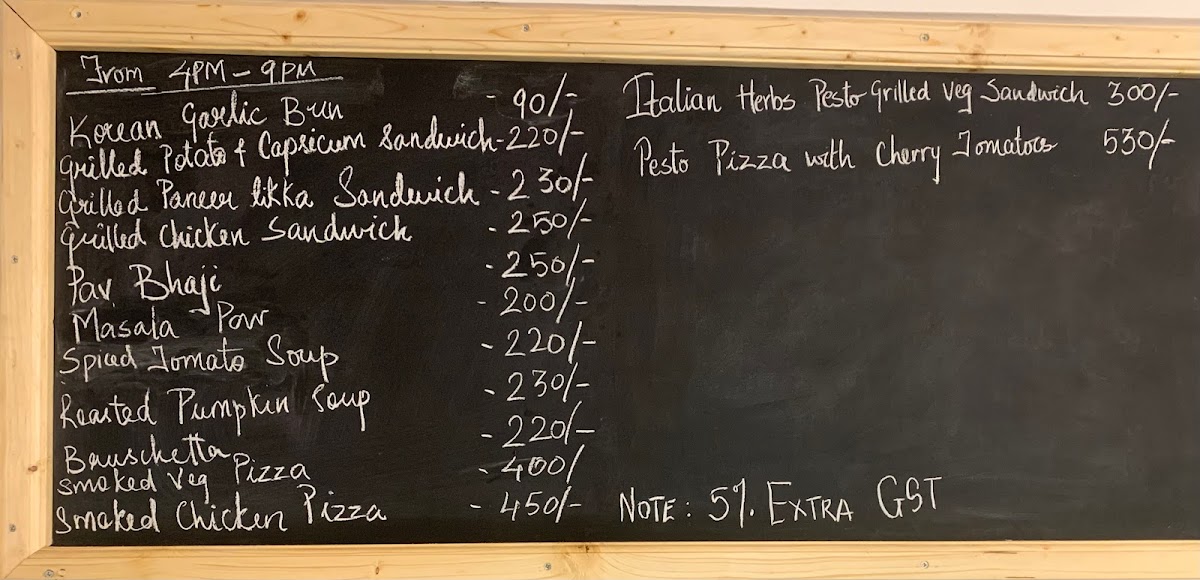 From 4PM - 9PM
Korean Garlic Bun - 90/-
Grilled Potato & Capsicum Sandwich - 220/-
Grilled Paneer tikka Sandwich - 230/-
Grilled Chicken Sandwich - 250/-
Pav Bhaji - 250/-
Masala Pow - 200/-
Spiced Tomato Soup - 220/-
Roasted Pumpkin Soup - 230/-
Bruschetta - 220/-
Smoked Veg Pizza - 400/
Smoked Chicken Pizza - 450/-
Italian Herbs Pesto Grilled Veg Sandwich 300/-
Pesto Pizza with Cherry Tomatoes 530/-
NOTE: 5% EXTRA GST